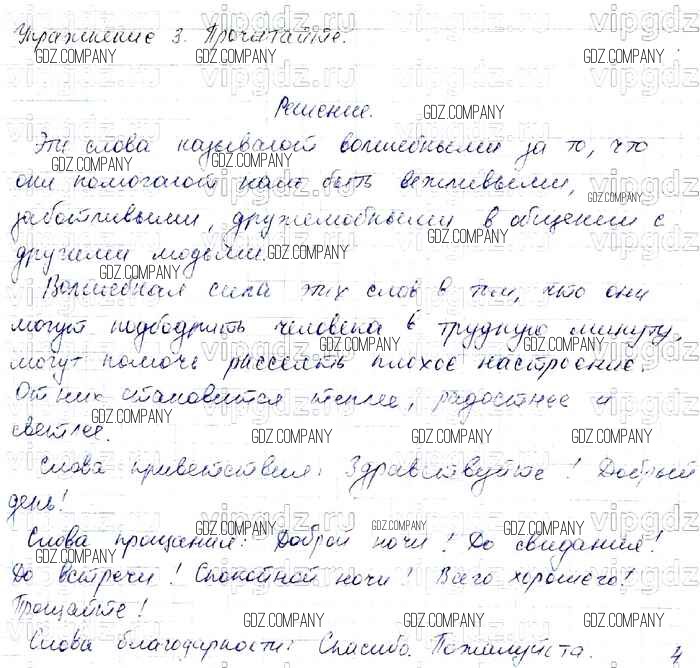 Упражнение 3. Прочитайте.
Решение.
Эти слова называют волшебными за то, что
они помогают нам быть вежливыми,
заботливыми, дружелюбными в общении с
другими людьми.
Волшебная сила этих слов в том, что они
могут подбодрить человека в трудную минуту,
могут помочь рассеять плохое настроение.
От них становится теплее, радостнее и
светлее.
Слова приветствия: Здравствуйте! Добрый
день!
Слова прощания: Доброй ночи! До свидания!
До встречи! Спокойной ночи! Всего хорошего!
Прощайте!
Слова благодарности: Спасибо. Пожалуйста.
4
vipgdz.ru
GDZ.COMPANY